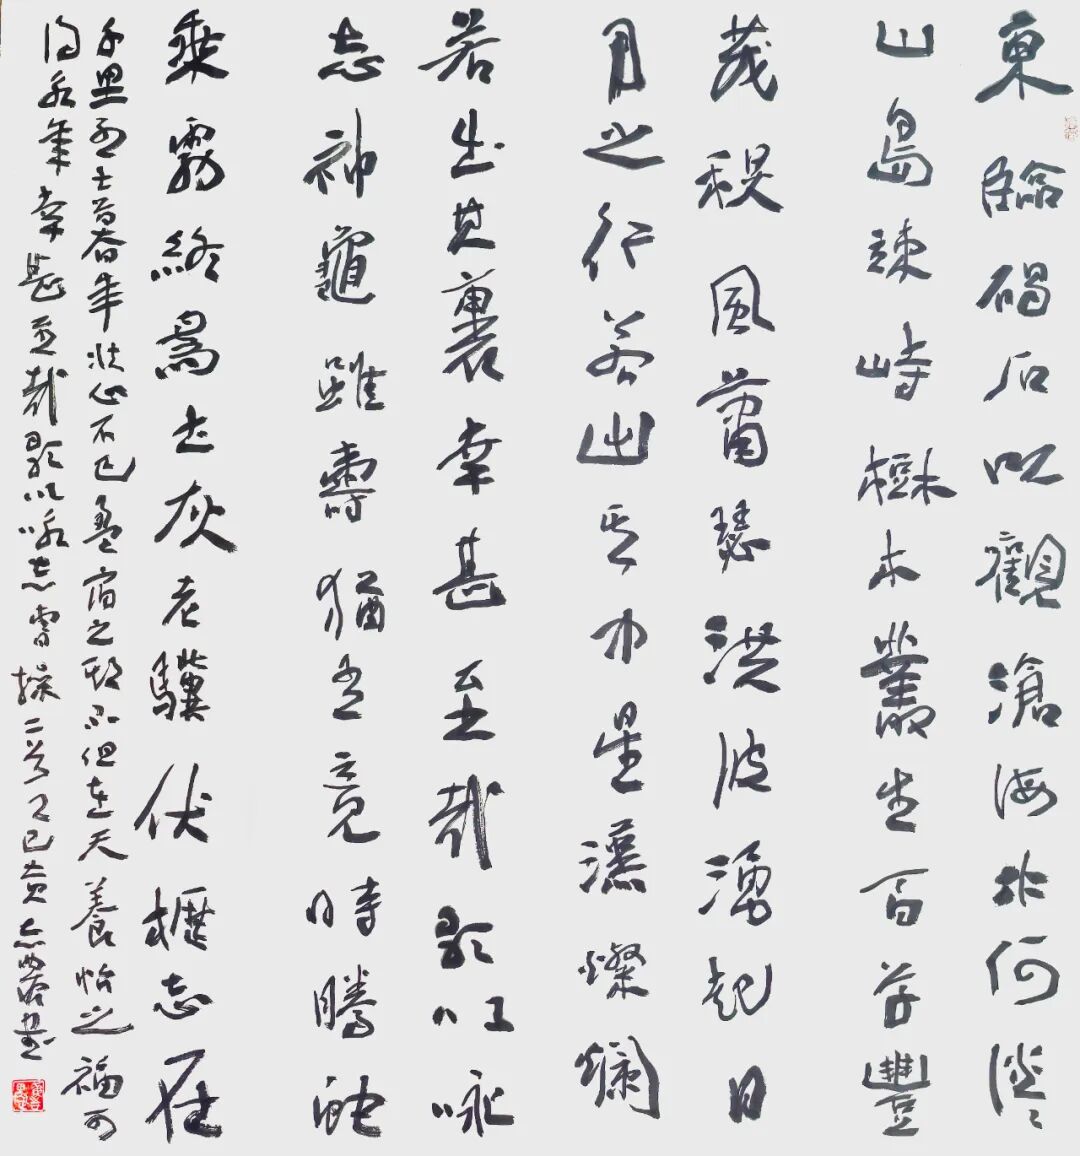 東臨碣石以觀滄海水何澹澹
山島竦峙樹木叢生百草豐
茂秋風蕭瑟洪波湧起日
月之行若出其中星漢燦爛
若出其裏幸甚至哉歌以咏
志神龜雖壽猶有竟時騰蛇
乘霧終爲土灰老驥伏櫪志在
千里烈士暮年壯心不已盈宿之期不但在天養怡之福可
得永年幸甚至哉歌以咏志曹操二首乙巳書